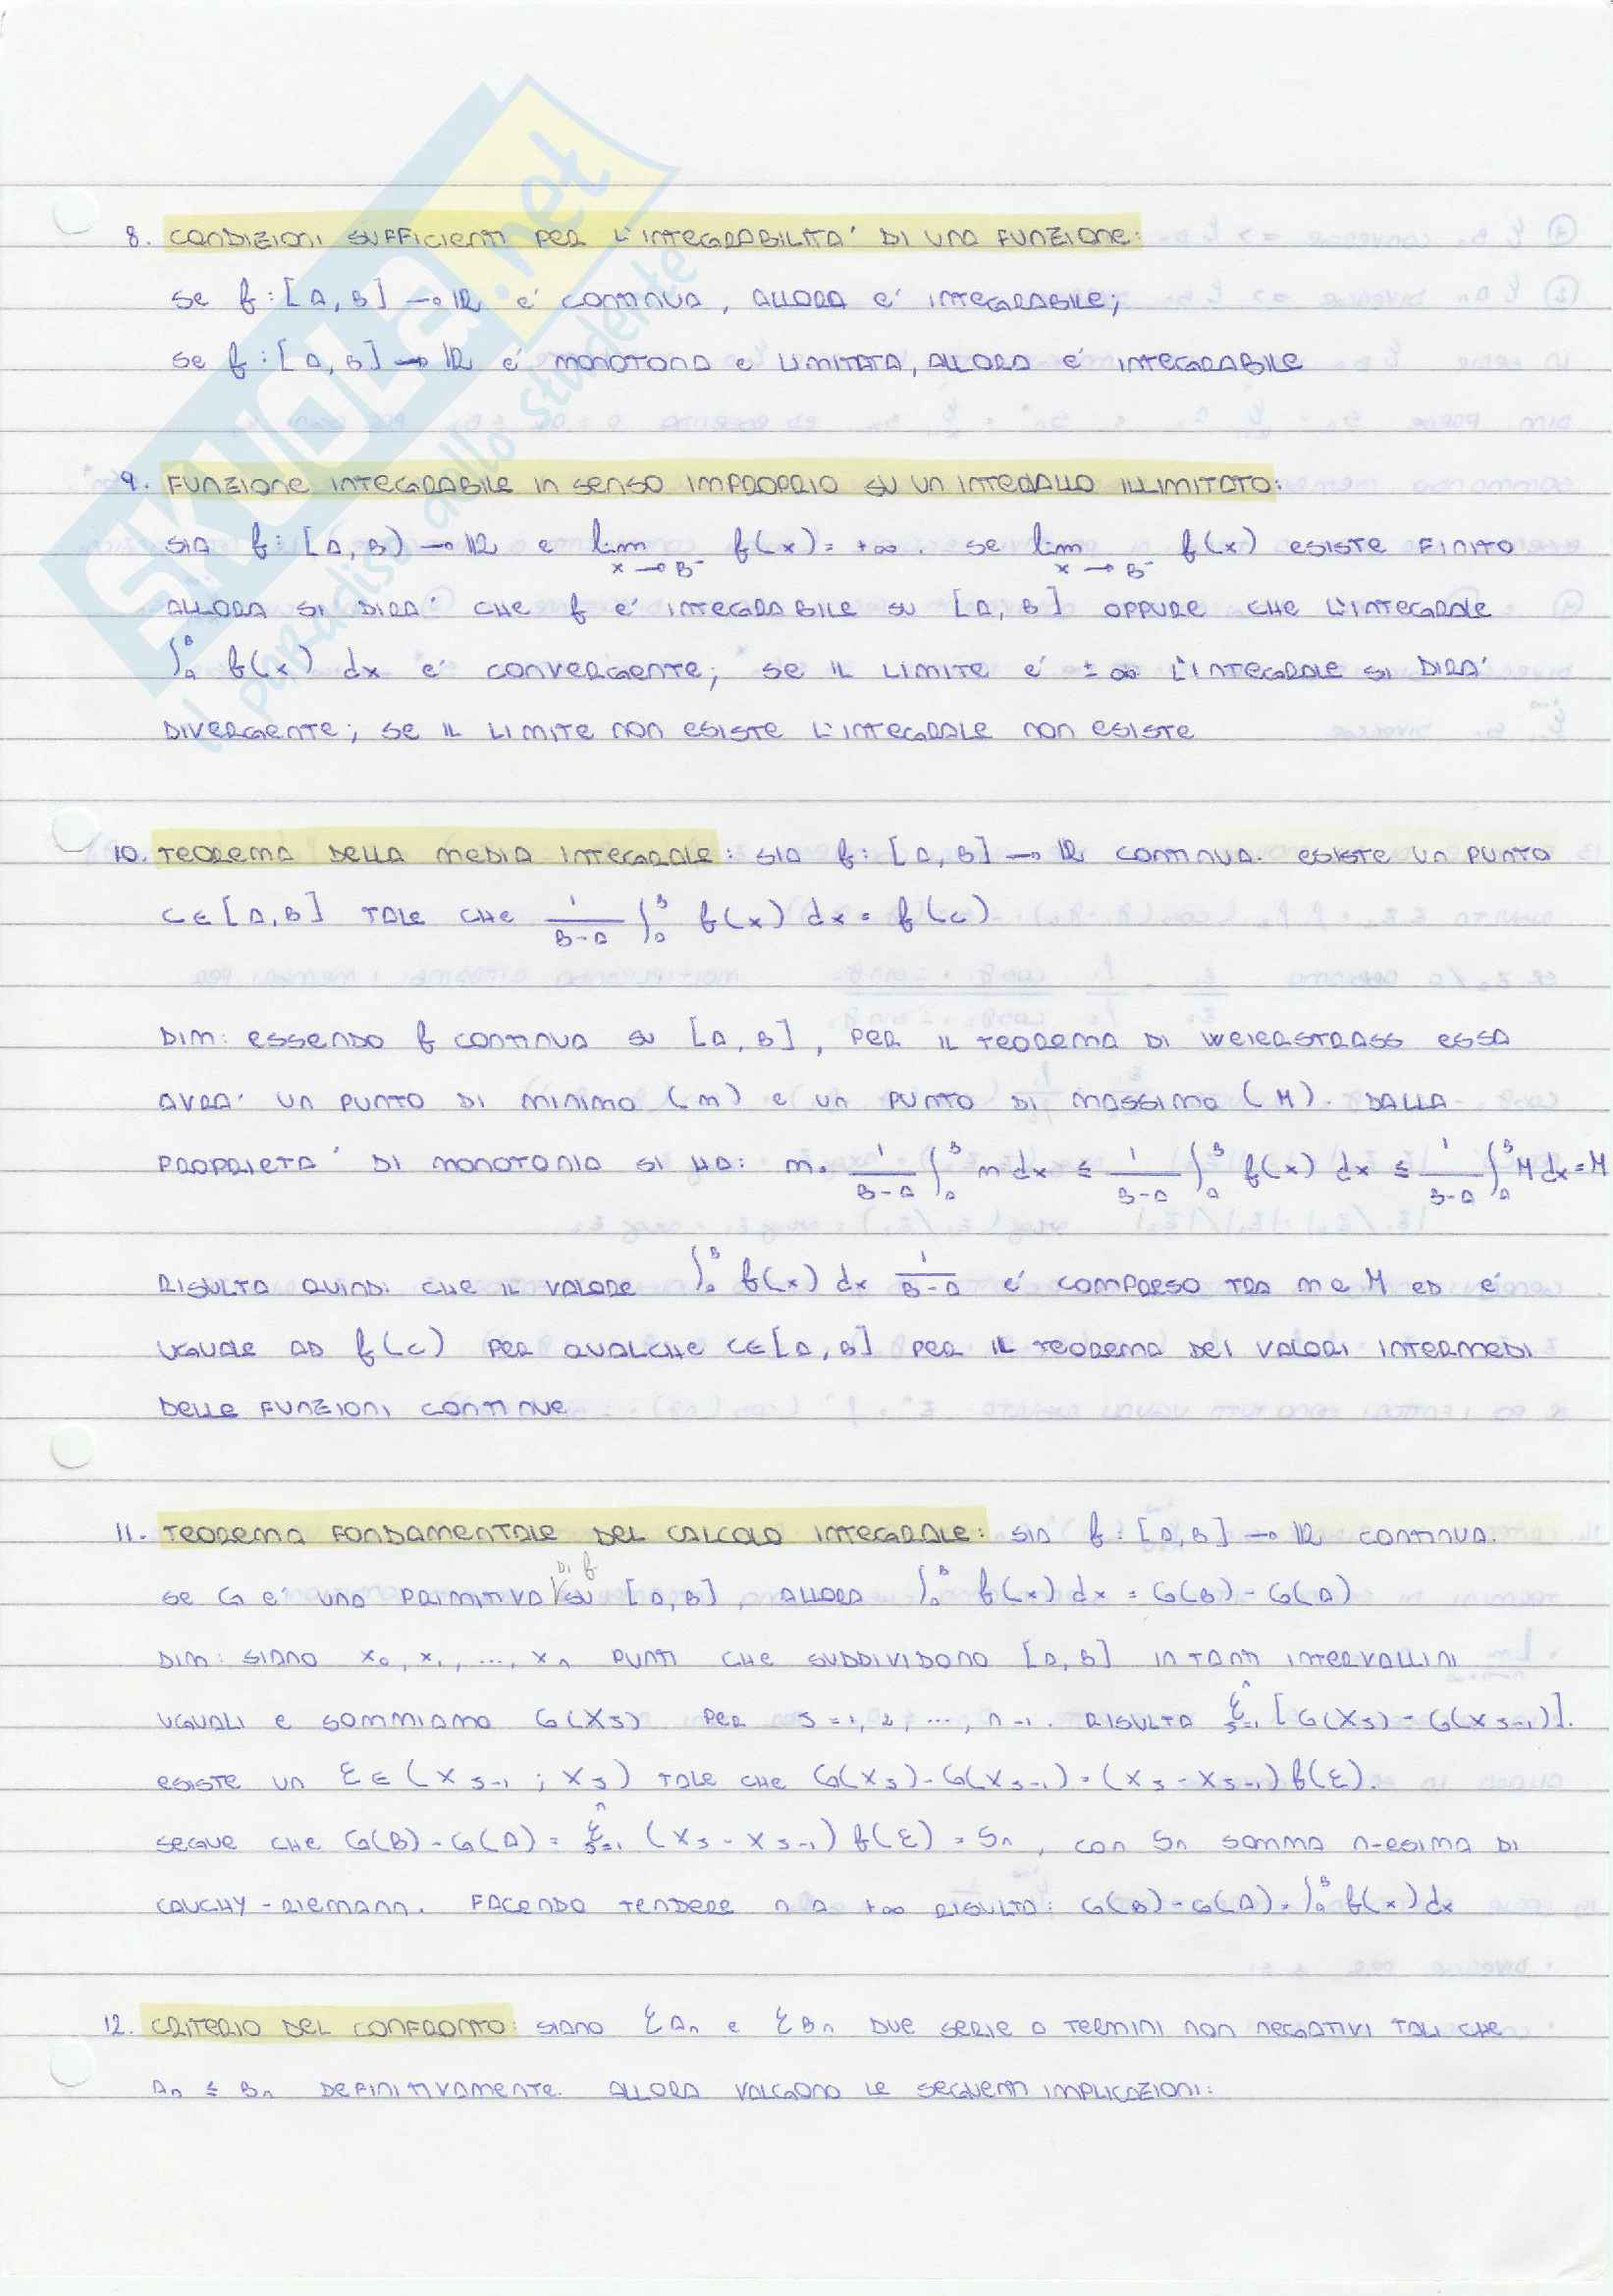 SKUOLA.net
il paradiso dello studente
8. CONDIZIONI SUFFICIENTI PER L'INTEGRABILITA' DI UNA FUNZIONE:
SE f: [A, B] → ℝ E' CONTINUA, ALLORA E' INTEGRABILE;
SE f: [A, B] → ℝ E' MONOTONA E LIMITATA, ALLORA E' INTEGRABILE
9. FUNZIONE INTEGRABILE IN SENSO IMPROPRIO SU UN INTERVALLO ILLIMITATO:
SIA f: [A, B) → ℝ E lim x→B⁻ f(x) = +∞. SE lim x→B⁻ f(x) ESISTE FINITO
ALLORA SI DIRA' CHE f E' INTEGRABILE SU [A, B] OPPURE CHE L'INTEGRALE
∫_A^B f(x) dx E' CONVERGENTE; SE IL LIMITE E' ±∞ L'INTEGRALE SI DIRA'
DIVERGENTE; SE IL LIMITE NON ESISTE L'INTEGRALE NON ESISTE
10. TEOREMA DELLA MEDIA INTEGRALE: SIA f: [A, B] → ℝ CONTINUA. ESISTE UN PUNTO
C∈[A,B] TALE CHE 1/(B-A) ∫_A^B f(x) dx = f(c)
DIM: ESSENDO f CONTINUA SU [A, B], PER IL TEOREMA DI WEIERSTRASS ESSA
AVRA' UN PUNTO DI MINIMO (m) E UN PUNTO DI MASSIMO (M). DALLA
PROPRIETA' DI MONOTONIA SI HA: m = 1/(B-A) ∫_A^B m dx ≤ 1/(B-A) ∫_A^B f(x) dx ≤ 1/(B-A) ∫_A^B M dx = M
RISULTA QUINDI CHE IL VALORE ∫_A^B f(x) dx 1/(B-A) E' COMPRESO TRA m E M ED E'
UGUALE AD f(c) PER QUALCHE C∈[A, B] PER IL TEOREMA DEI VALORI INTERMEDI
DELLE FUNZIONI CONTINUE
11. TEOREMA FONDAMENTALE DEL CALCOLO INTEGRALE: SIA f: [A,B] → ℝ CONTINUA.
SE G E' UNA PRIMITIVA DI f SU [A,B], ALLORA ∫_A^B f(x) dx = G(B) - G(A)
DIM: SIANO x₀, x₁, ..., xₙ PUNTI CHE SUDDIVIDONO [A, B] IN TANTI INTERVALLINI
UGUALI E SOMMIAMO G(XJ) PER J = 1, 2, ..., n-1. RISULTA Σ_{J=1}^n [G(XJ) - G(XJ-1)].
ESISTE UN ξ ∈ (XJ-1 ; XJ) TALE CHE G(XJ) - G(XJ-1) = (XJ - XJ-1) f(ξ).
SEGUE CHE G(B) - G(A) = Σ_{J=1}^n (XJ - XJ-1) f(ξ) = Sn, CON Sn SOMMA N-ESIMA DI
CAUCHY-RIEMANN. FACENDO TENDERE n A +∞ RISULTA: G(B) - G(A) = ∫_A^B f(x) dx
12. CRITERIO DEL CONFRONTO: SIANO ΣAn E ΣBn DUE SERIE A TERMINI NON NEGATIVI TALI CHE
An ≤ Bn DEFINITIVAMENTE. ALLORA VALGONO LE SEGUENTI IMPLICAZIONI: